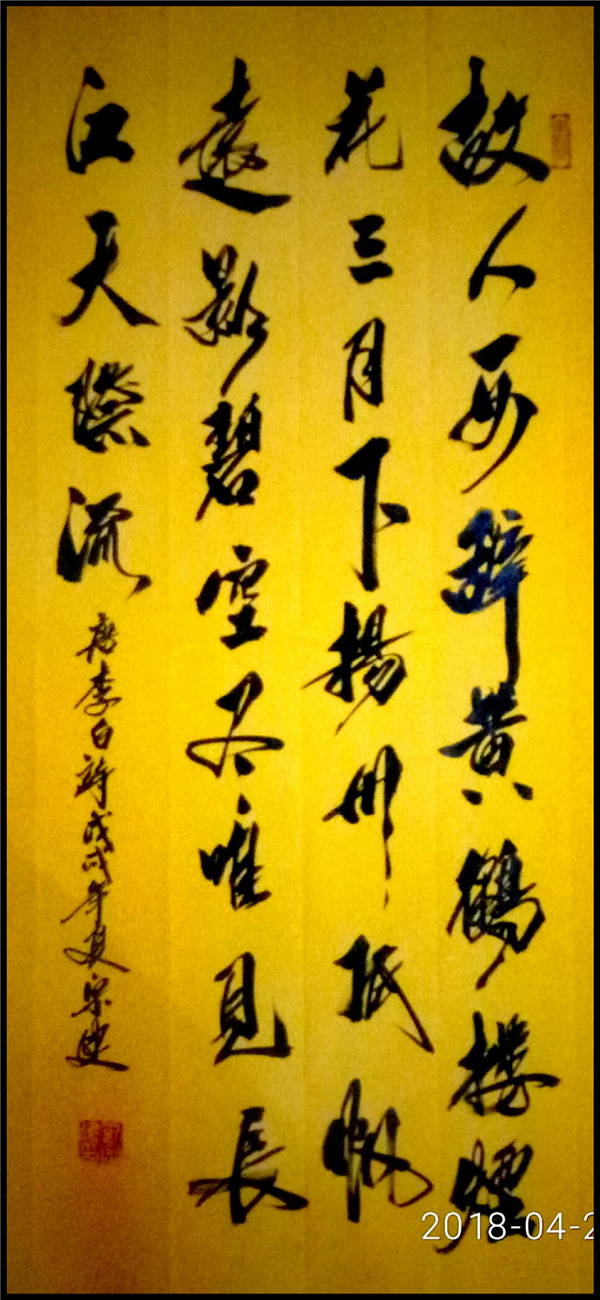 故人西辭黄鶴樓煙
花三月下揚州孤帆
遠影碧空尽唯見長
江天際流
唐李白詩戊戌年夏
2018-04-2